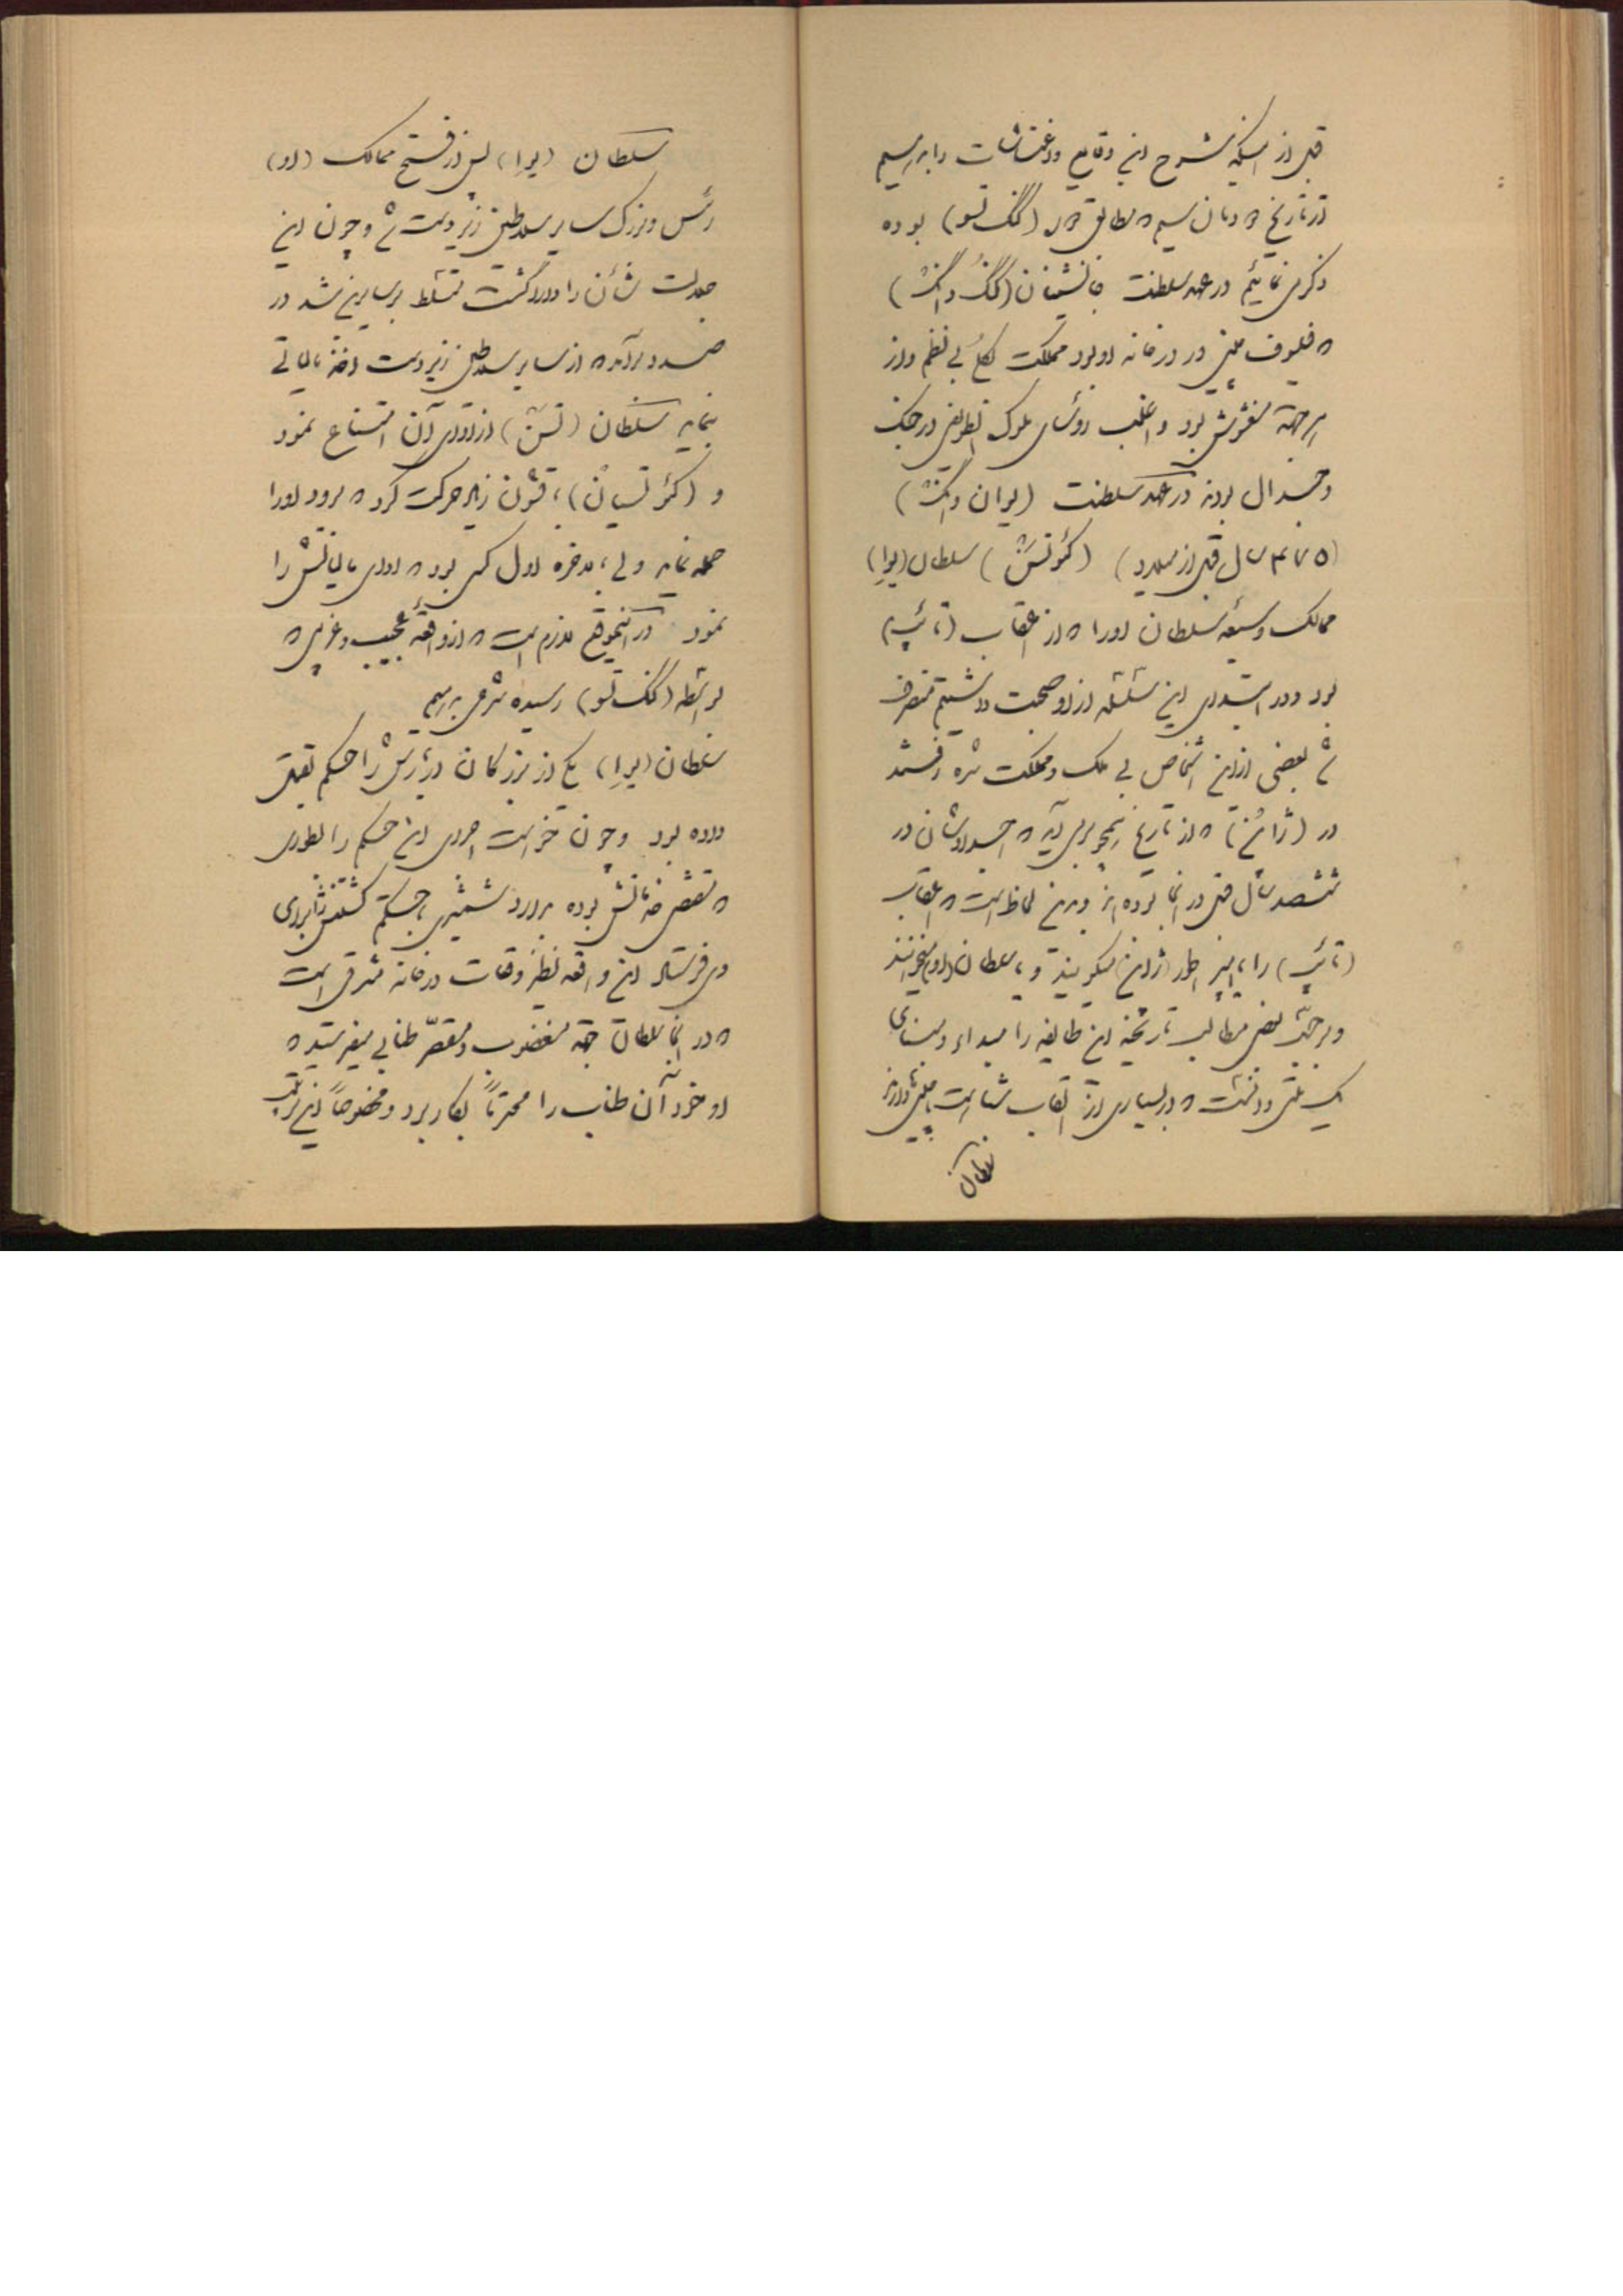 قبل از اینکه بشرح این وقایع و اغتشاشات را بنویسیم
از تاریخ و زمان سیم که مطابق (کنگ تسو) بوده
ذکر می نمائیم در عهد سلطنت جانشینان (کنگ وانگ)
که فیلوف چینی در درخانه او بود مملکت بی نظم و از
هر جهة مغشوش بود و اغلب رؤسای ملوک الطوایفی در جنگ
و جدال بودند در عهد سلطنت (یوان وانگ)
(۴۷۵ سال قبل از میلاد) (کئوتسن) سلطان (یوا)
ممالک وسیعه سلطان او را که از اعقاب (تائپه)
بود و در ابتدای این سلسله از او صحبت داشتیم متصرف
شد بعضی از این اشخاص بی ملک و مملکت شده رفتند
در (ژاپن) که از تاریخ برمی آید که اجدادشان در
ششصد سال قبل در آنجا بوده اند و از این لحاظ است که اعقاب
(تائپه) را امپراطور ژاپن میگویند و سلطان (او) میخوانند
و بر حسب بعضی مطالب تاریخیه این طایفه را مبداء و منشای
یک ملتی دانست که در بسیاری از القاب شباهت بچینی ندارند
سلطان
سلطان (یوا) پس از فتح ممالک (او)
رئیس و بزرگ سایر سلاطین زیردست شد و چون این
جلالت شأن را دارا گشت و مسلط بر سایرین شد در
صدد برآمد که از سایر سلاطین زیردست اخذ مالیاتی
نماید سلطان (تسن) از ادای آن امتناع نمود
و (کئوتسیان) با قشون زیاد حرکت کرد که برود او را
حمله نماید ولی بالاخره اول کسی بود که ادای مالیاتش را
نمود در این موقع لازم است که از واقعه عجیب و غریبی که
بواسطه (کنگ تسو) رسیده شرحی بنویسیم
سلطان (یوا) یکی از بزرگان دربارش را حکم بقتل
داده بود و چون خواست اجرای این حکم را بطوری
که مقتضی بوده بدارد شمشیری با حکم کشتنش برای
وی فرستاد این واقعه نظیر وقایع درخانه مشرقی است
که در آنجا سلطان جهة مغضوب و مقصر طنابی میفرستد که
او خود آن طناب را محترماً بکار برد و مخصوصاً این ترتیب